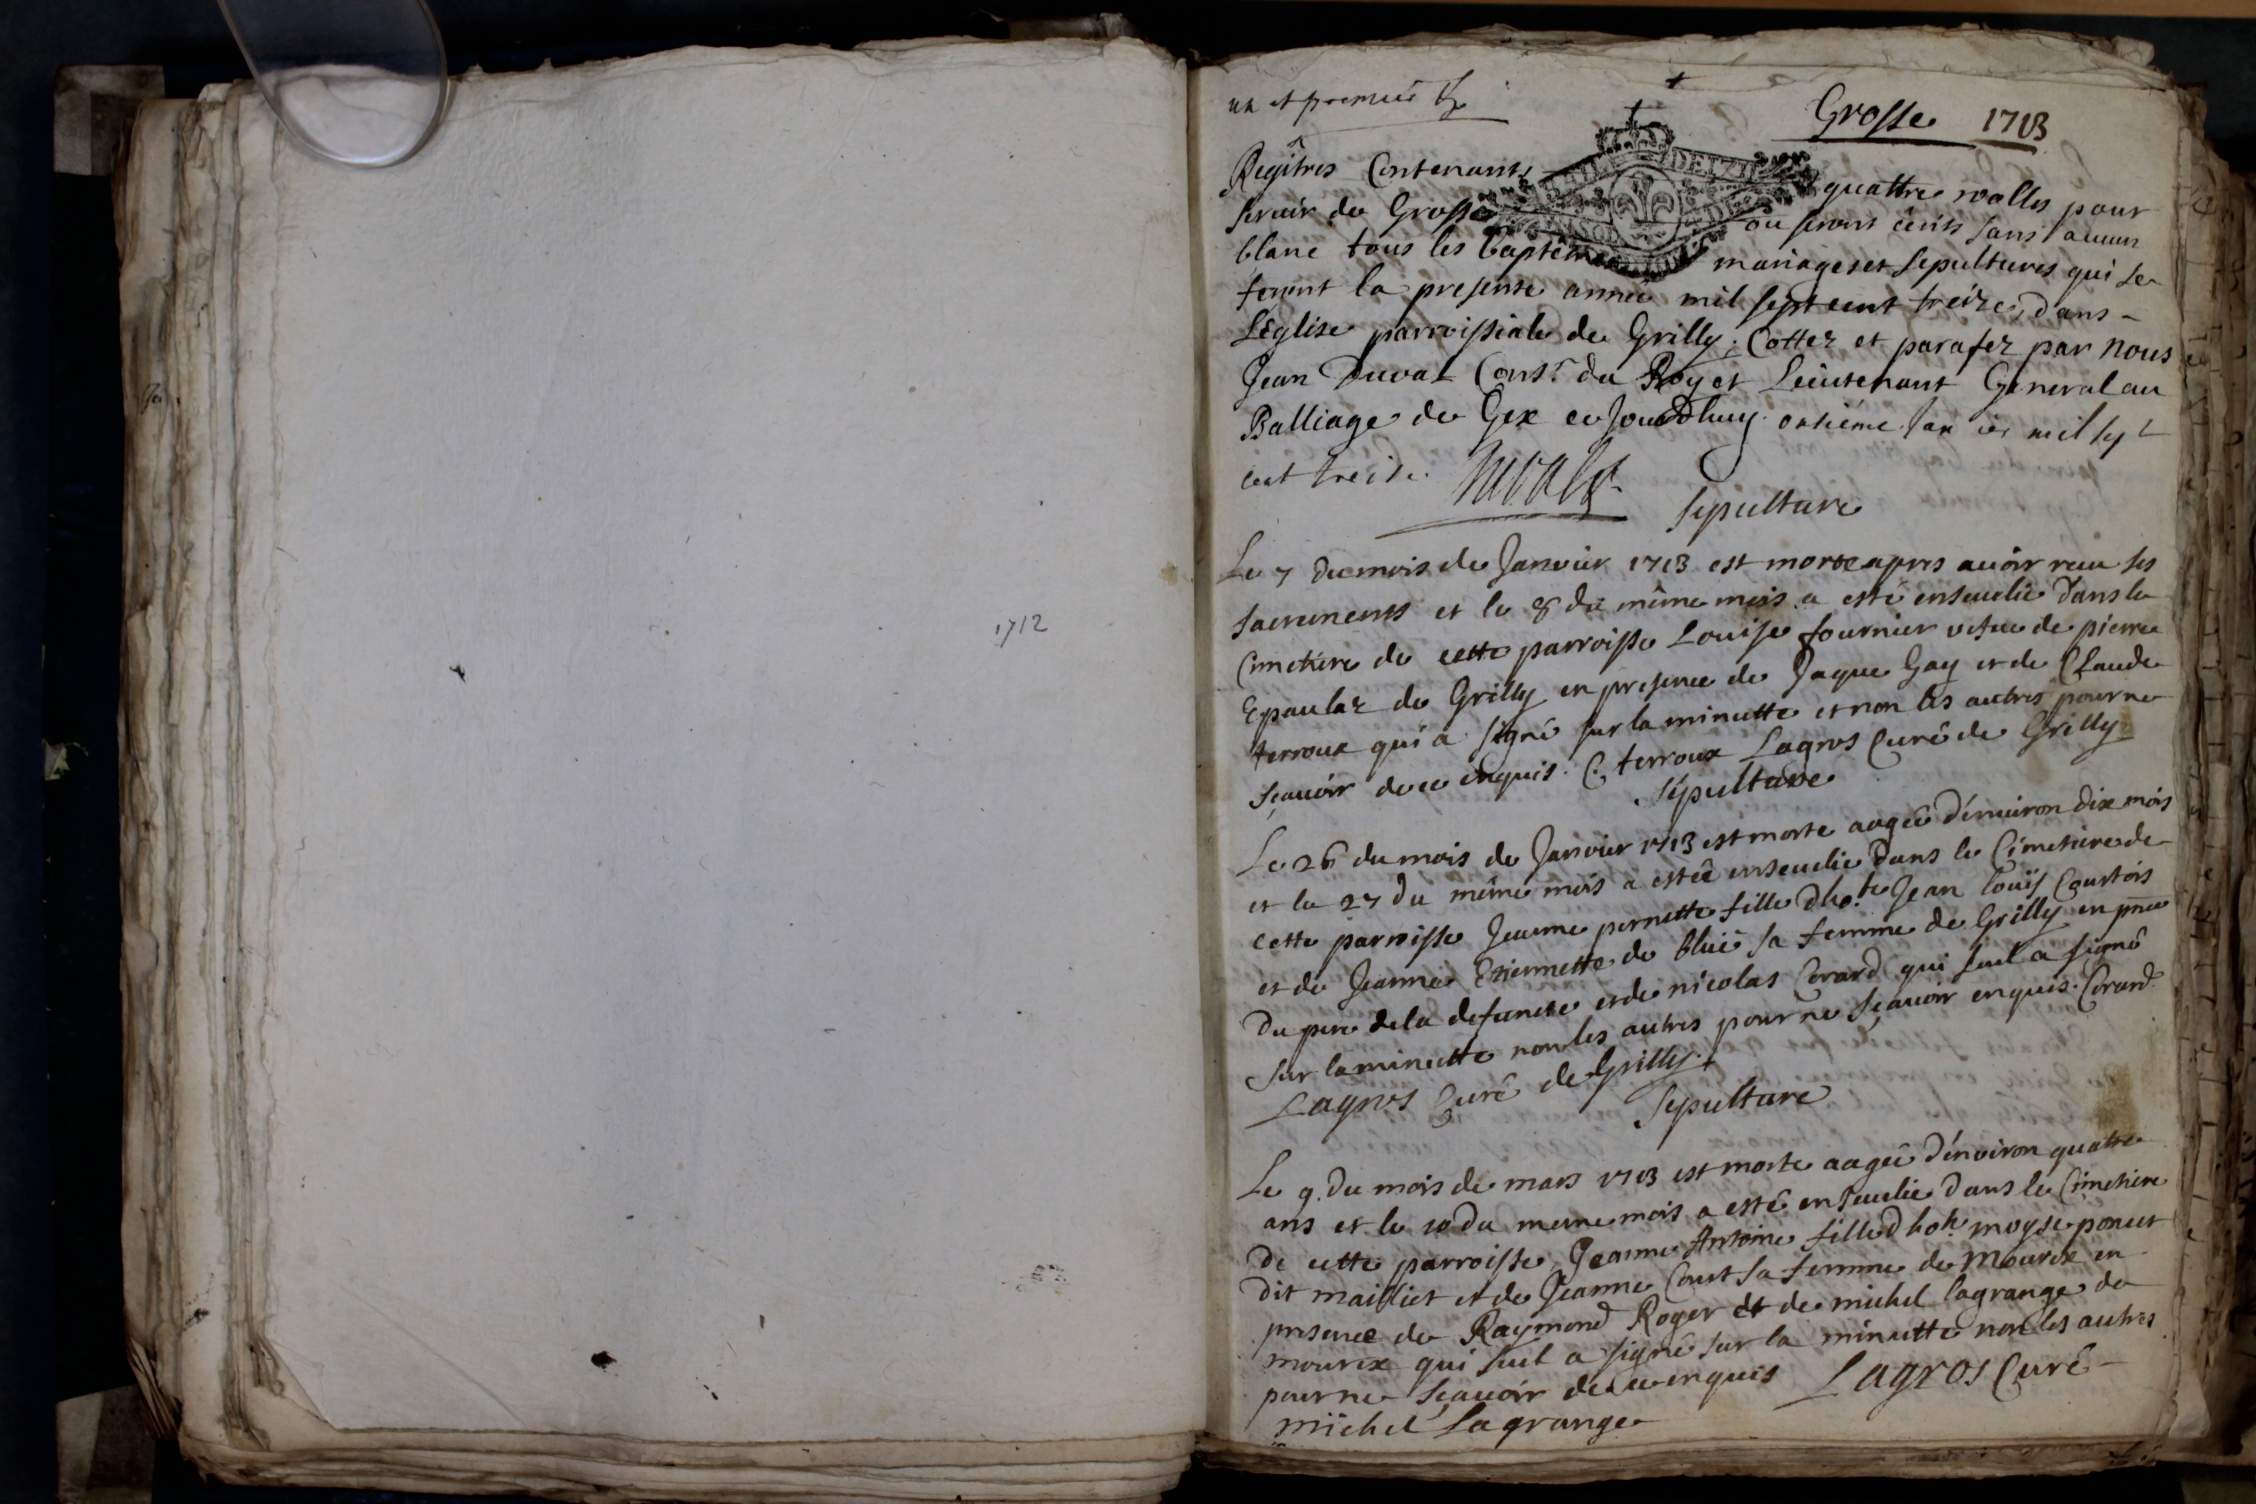 1712
un et premier
Grosse 1713
Regîtres Contenants quattre rolles pour
seruir de Grosse ou seront écrits sans aucun
blanc tous les baptêmes mariages et sepultures qui se
feront la presente année mil sept cent treize, dans
L'êglise parroissiale de Grilly; Cottez et parafez par nous
Jean Duval Consr. du Roy et Lieutenant General au
Balliage de Gex ce Jourdhuy onzième Janvier mil sept
cent treize. Duval
Sepulture
Le 7 du mois de Janvier 1713 est morte apres auoir receu ses
sacrements et le 8 du même mois a esté enseuelie dans le
Cimetiere de cette parroisse Louise fournier vefue de pierre
Epaulaz de Grilly en presence de Jaque Gay et de Claude
terroux qui a signé sur la minutte et non les autres pour ne
sçauoir de ce enquis. C. terroux Lagros Curé de Grilly
Sépulture
Le 26 du mois de Janvier 1713 est morte aagée d'énuiron dix mois
et le 27 du même mois a estée enseuelie dans le Cimetiere de
cette parroisse Jeanne pernette fille d'ho.te Jean louïs Courtois
et de Jeanne Etiennette de bluë sa femme de Grilly en pnce
du pere de la defuncte et de nicolas Corard qui seul a signé
sur la minutte non les autres pour ne sçauoir enquis. Corard
Lagros Curé de Grilly
Sepulture
Le 9. du mois de mars 1713 est morte aagée d'énviron quatre
ans et le 10 du meme mois a esté enseuelie dans le Cimetiere
de cette parroisse, Jeanne Antoine fille d hote. moyse poncet
dit mailliet et de Jeanne Court sa femme de Mourex en
presence de Raymond Roger et de michel lagrange de
mourex qui seul a signé sur la minutte non les autres
pour ne sçauoir de ce enquis Lagros Curé
michel Lagrange